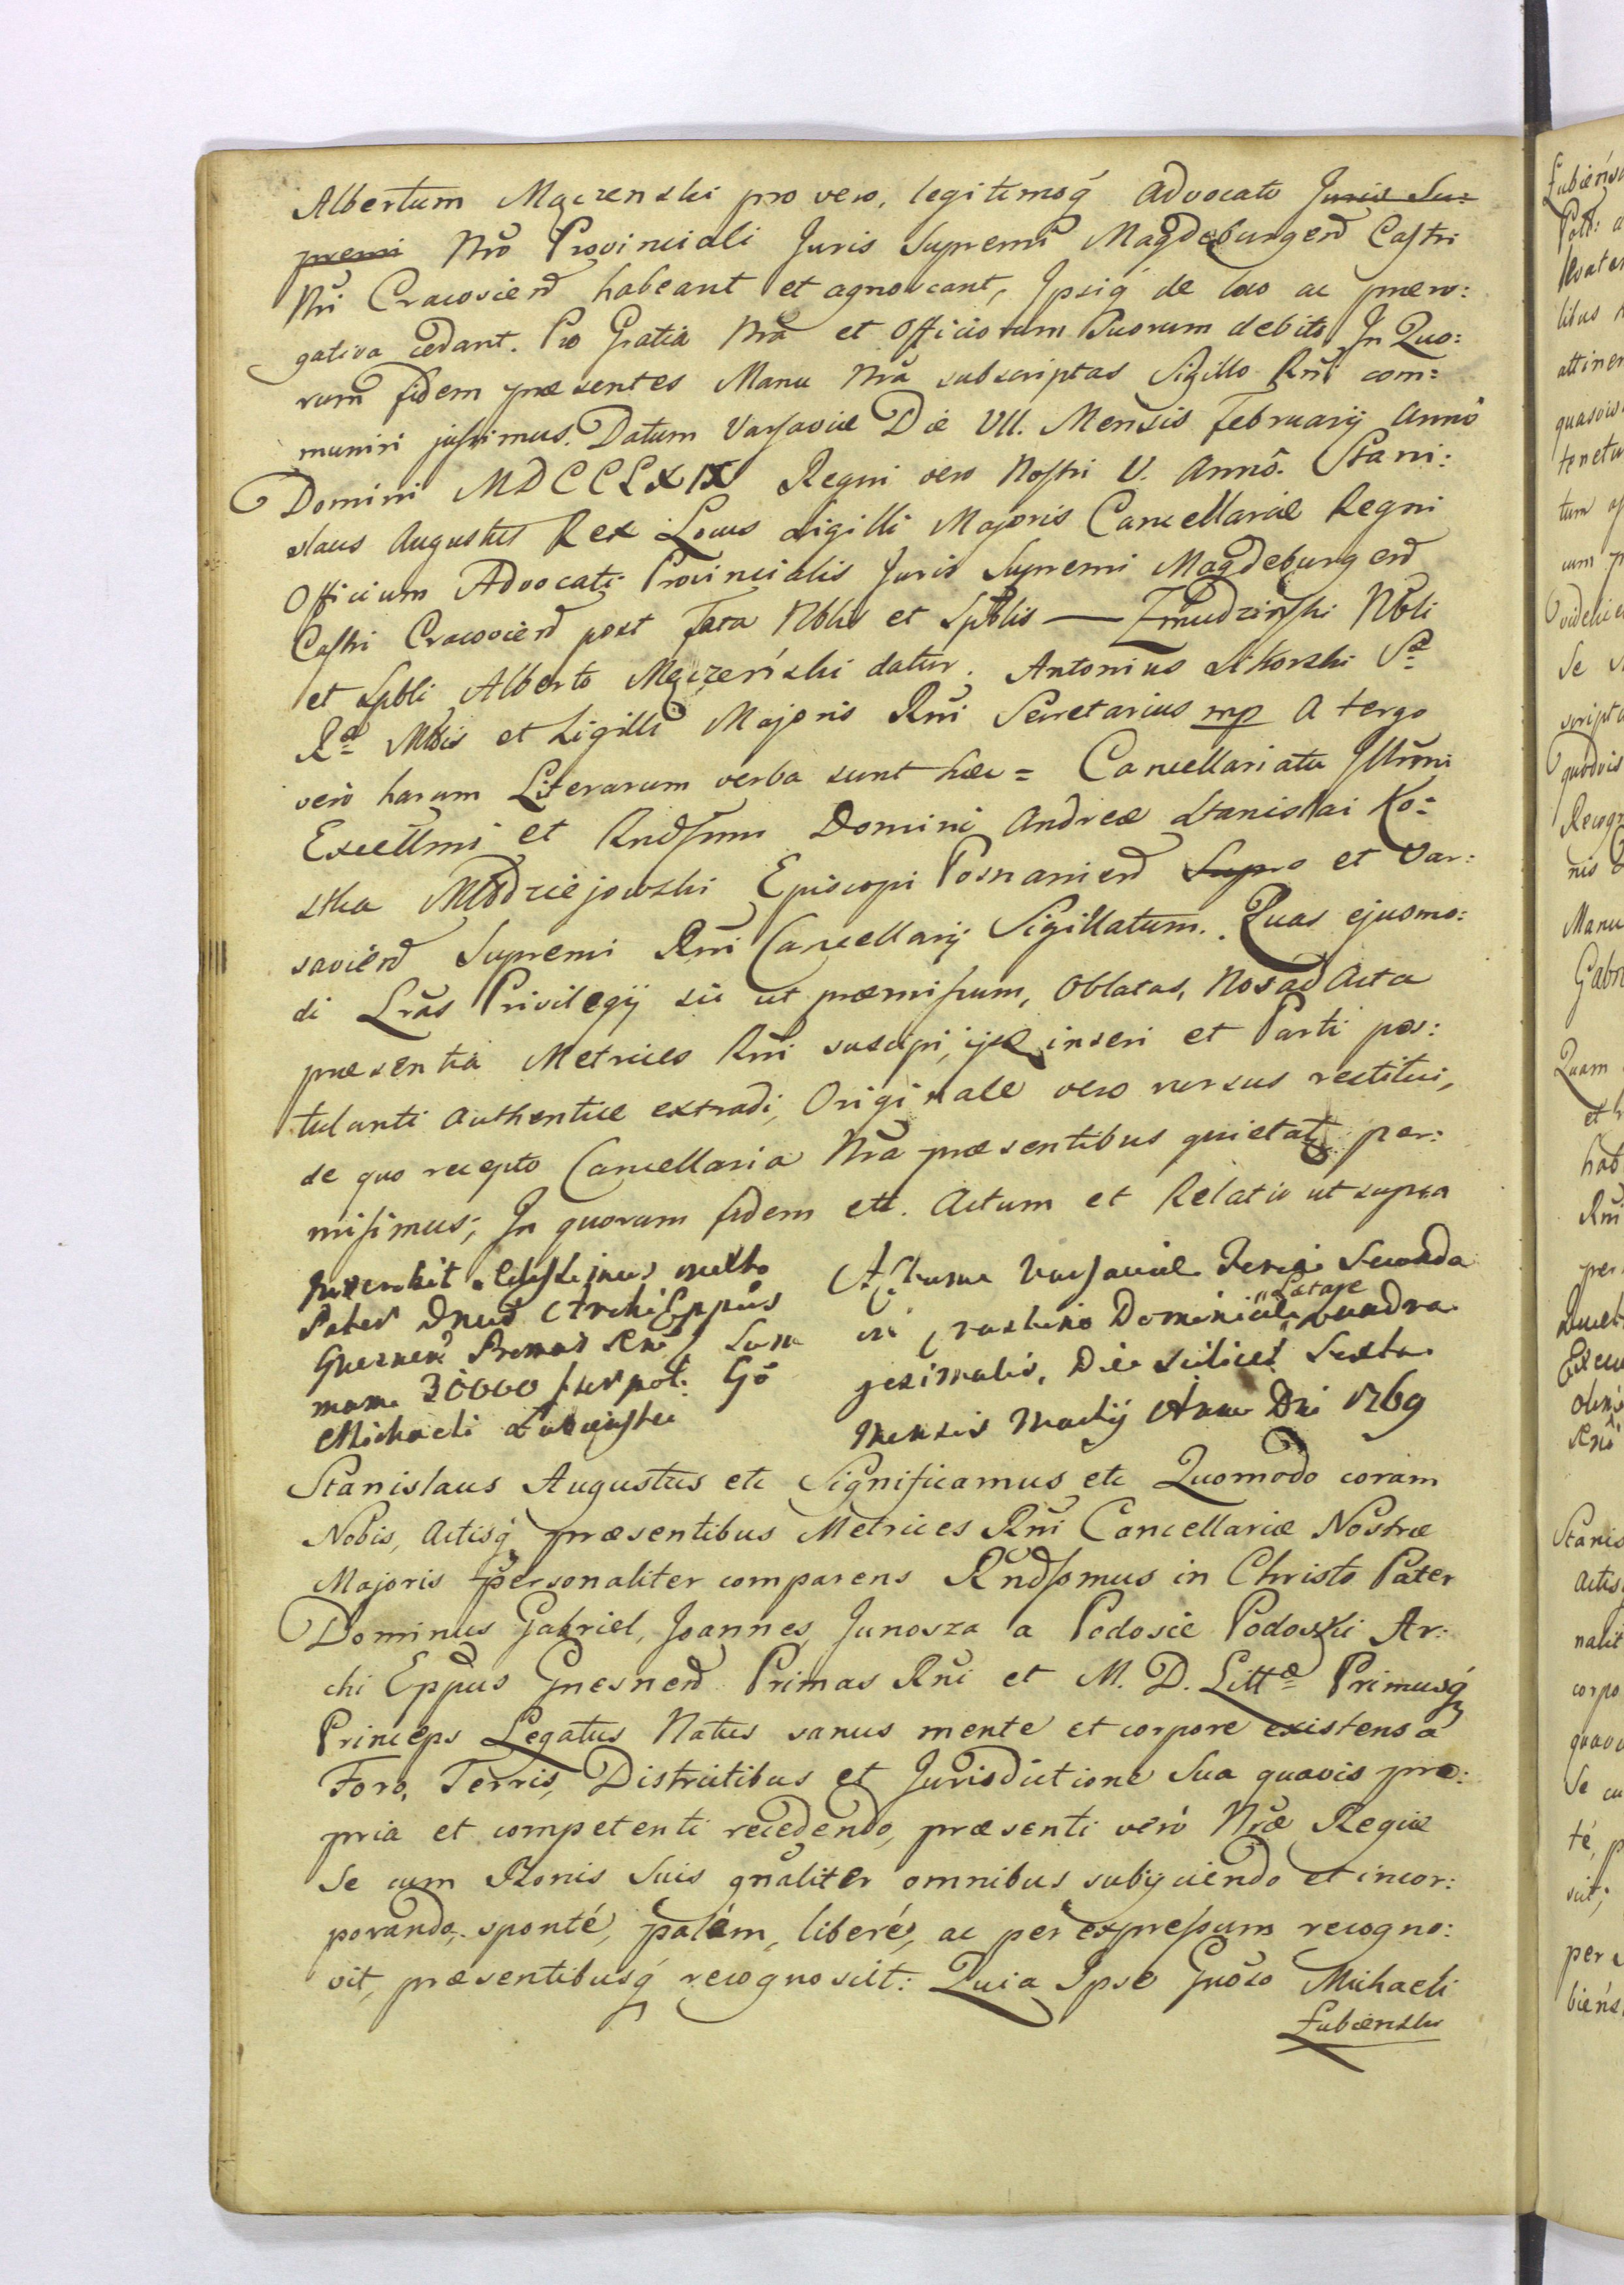 Albertum Mączenski pro vero, legitimoq́ Advocato Juris Su:
premi Nro Provinciali Juris Supremi Magdeburgen Castri
Nri Cracovien habeant et agnoscant, Ipsiq́ de loco ac præro:
gativa cedant. Pro Gratia Nra et Officiorum Suorum debito In Quo:
rum fidem præsentes Manu Nra subscriptas Sigillo Rni com:
muniri jussimus. Datum Varsaviæ Die VII. Mensis Februarij Anno
Domini MDCCLXIX Regni vero Nostri V. Anno. Stani:
slaus Augustus Rex Locus Sigilli Majoris Cancellariæ Regni
Officium Advocati Provincialis Juris Supremi Magdeburgen
Castri Cracovien post Fata Nblis et Spblis — Zmudzinski Nbli
et Spbli Alberto Mączeński datur. Antonius Sikorski Sæ
Ræ Mttis et Sigilli Majoris Rni Secretarius mp A tergo
verò harum Literarum verba sunt hæc = Cancellariatu Illrmi
Excellmi et Rndssmi Domini Andreæ Stanislai Ko:
stka Młodziejowski Episcopi Posnanien Supro et Var:
savien Supremi Rni Cancellarij Sigillatum. Quas ejusmo:
di Lras Privilegij sic ut præmissum, Oblatas, Nos ad Acta
præsentia Metrices Rni suscipi, ijsq inseri et Parti pos:
tulanti authentice extradi, Originale vero rursus restitui,
de quo recepto Cancellaria Nra præsentibus quietata per:
misimus; In quorum fidem ett. Actum et Relatio ut supra
Inscribit Celsissimus
Pater Dnus ArchiEppus
Gnesnen Primas Rni Sum
mam 30000
Michaeli Łubieński
Actum Varsaviæ Feria Secunda
in Crastino Dominicæ Lætare Quadra
gesimalis, Die scilicet Sexta
Mensis Martij Anno Dni 1769
Stanislaus Augustus etc Significamus etc Quomodo coram
Nobis, Actisq́ præsentibus Metrices Rni Cancellariæ Nostræ
Majoris personaliter comparens Rndssmus in Christo Pater
Dominus Gabriel, Joannes, Junosza a Podosie Podoski Ar:
chi Eppus Gnesnen Primas Rni et M. D. Littæ Primusq́
Princeps Legatus Natus sanus mente et corpore existens à
Foro, Terris, Districtibus et Jurisdictione Sua quavis pro:
pria et competenti recedendo, præsenti verò Nræ Regiæ
Se cum Bonis Suis gnaliter omnibus subijciendo et incor:
porando, sponté, palém, liberé, ac per expressum recogno:
vit, præsentibusq́ recognoscit: Quia Ipse Gnoso Michaeli
Łubienski